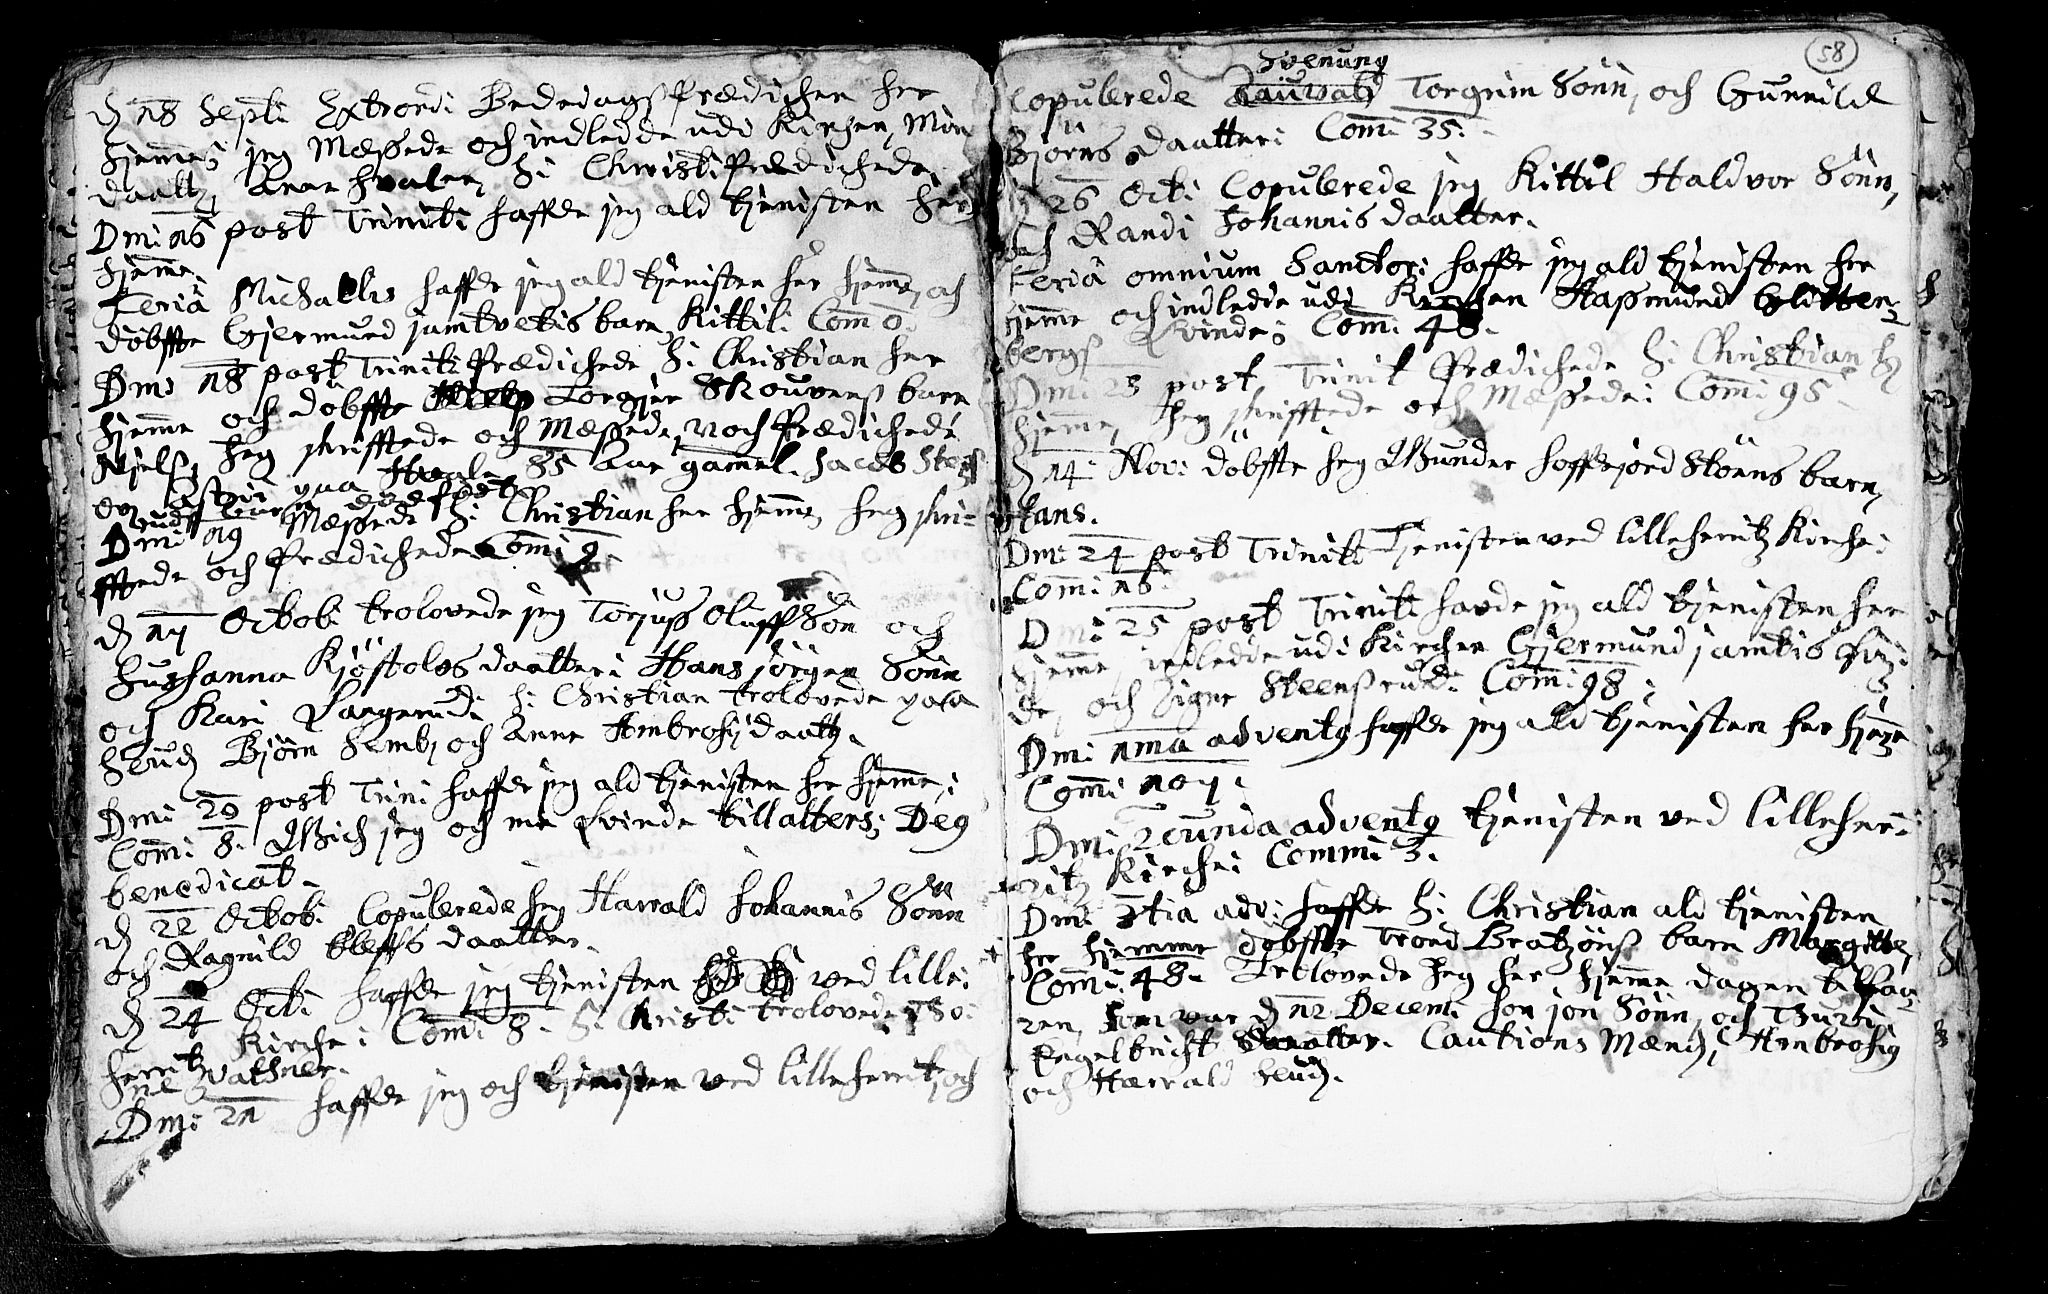 d 18 Septi Extrordi Bededags Prædichen her
hjemme, jeg Messede och indledde udi Kirchen, Mari
daatt, Anne hvaler, H: Christi Prædichede,
Dmi 16 post Triniti haffde jeg ald tjenisten her
hjemme.
Feria Michaelis haffde jeg ald tjenisten her hjemme, och
döbffte Gjermund jamtvetis barn Kittil: Com 0.
Dmi 18 post Triniti Prædichede H: Christian her
hjemme och döbffte Torgier Skouvens barn
Njels, Jeg skrifftede och Messede, noch Prædichede
paa Hvale 85 Aar gamel. Jacob
Dmi 19 Messede H: Christian her hjemme, Jeg skri-
fftede och Prædichede Comi 9.
d 17 Octobi trolovede jeg Torjuss Oluff Sön och
Sushanna Kjöstolos daatter: Hans jörgen Sönn
och Kari Langerud: H: Christian trolovede paa
Heud Björn Semb, och Anne Ambrosij daatt.
Dmi 20 post Trini haffde jeg ald tjenisten her hjemme,
Comi 8. Gich jeg och min Qvinde till alters; Deg
benedicat.
d 22 Octobi Copulerede Jeg Harrald Johannis Sönn
och Ragnild Oleffs daatter.
d 24 Octi haffde jeg tjenisten ved lille:
herritz Kirche: Comi 8. H: Christi trolovede Tho:
ne Vathner.
Dmi 21 haffde jeg och tjenisten ved lilleherritz, och
58
Svenung
Copulerede Torgrim Sönn, och Gunnild
Björns daatter: Comi 35.
d 26 Octi Copulerede jeg Kittil Haldvor Sönn,
och Randi Johannis daatter.
Feria omnium Sanctor: haffde jeg ald tjenisten her
hjemme och indledde udi Kirchen Aassmund Glitten-
bergs Qvinde; Comi 48.
Dmi 23 post Trinit Prædichede H: Christian her
hjemme, Jeg skrifftede och Messede: Comi 95.
d 14 Nov: döbffte Jeg Gunder Haffsjord Störns barn,
Hans.
Dmi 24 post Triniti Tjenisten ved lilleherritz Kirche:
Comi 16.
Dmi 25 post Triniti havde jeg ald tjenisten her
hjemme, indledde udi Kirchen Gjermund jamtis Qvin
de, och Signe Steensrud: Comi 98.
Dmi 1ma advent9 haffde jeg ald tjenisten her hjemme
Comi 107.
Dmi 2cunda advent9 tjenisten ved lilleher-
ritz Kirche: Commi 3.
Dmi 3tia adv: haffde H: Christian ald tjenisten
her hjemme döbffte Troed Bratzöns barn Margitte,
Comi 48. Trolovede Jeg her hjemme dagen tilfor-
ren, som var d 12 Decem: Jon jon Sönn, och Thuri
Engelbricht Daatter. Cautions Mænd, Ambrosig
och Harrald Heud.